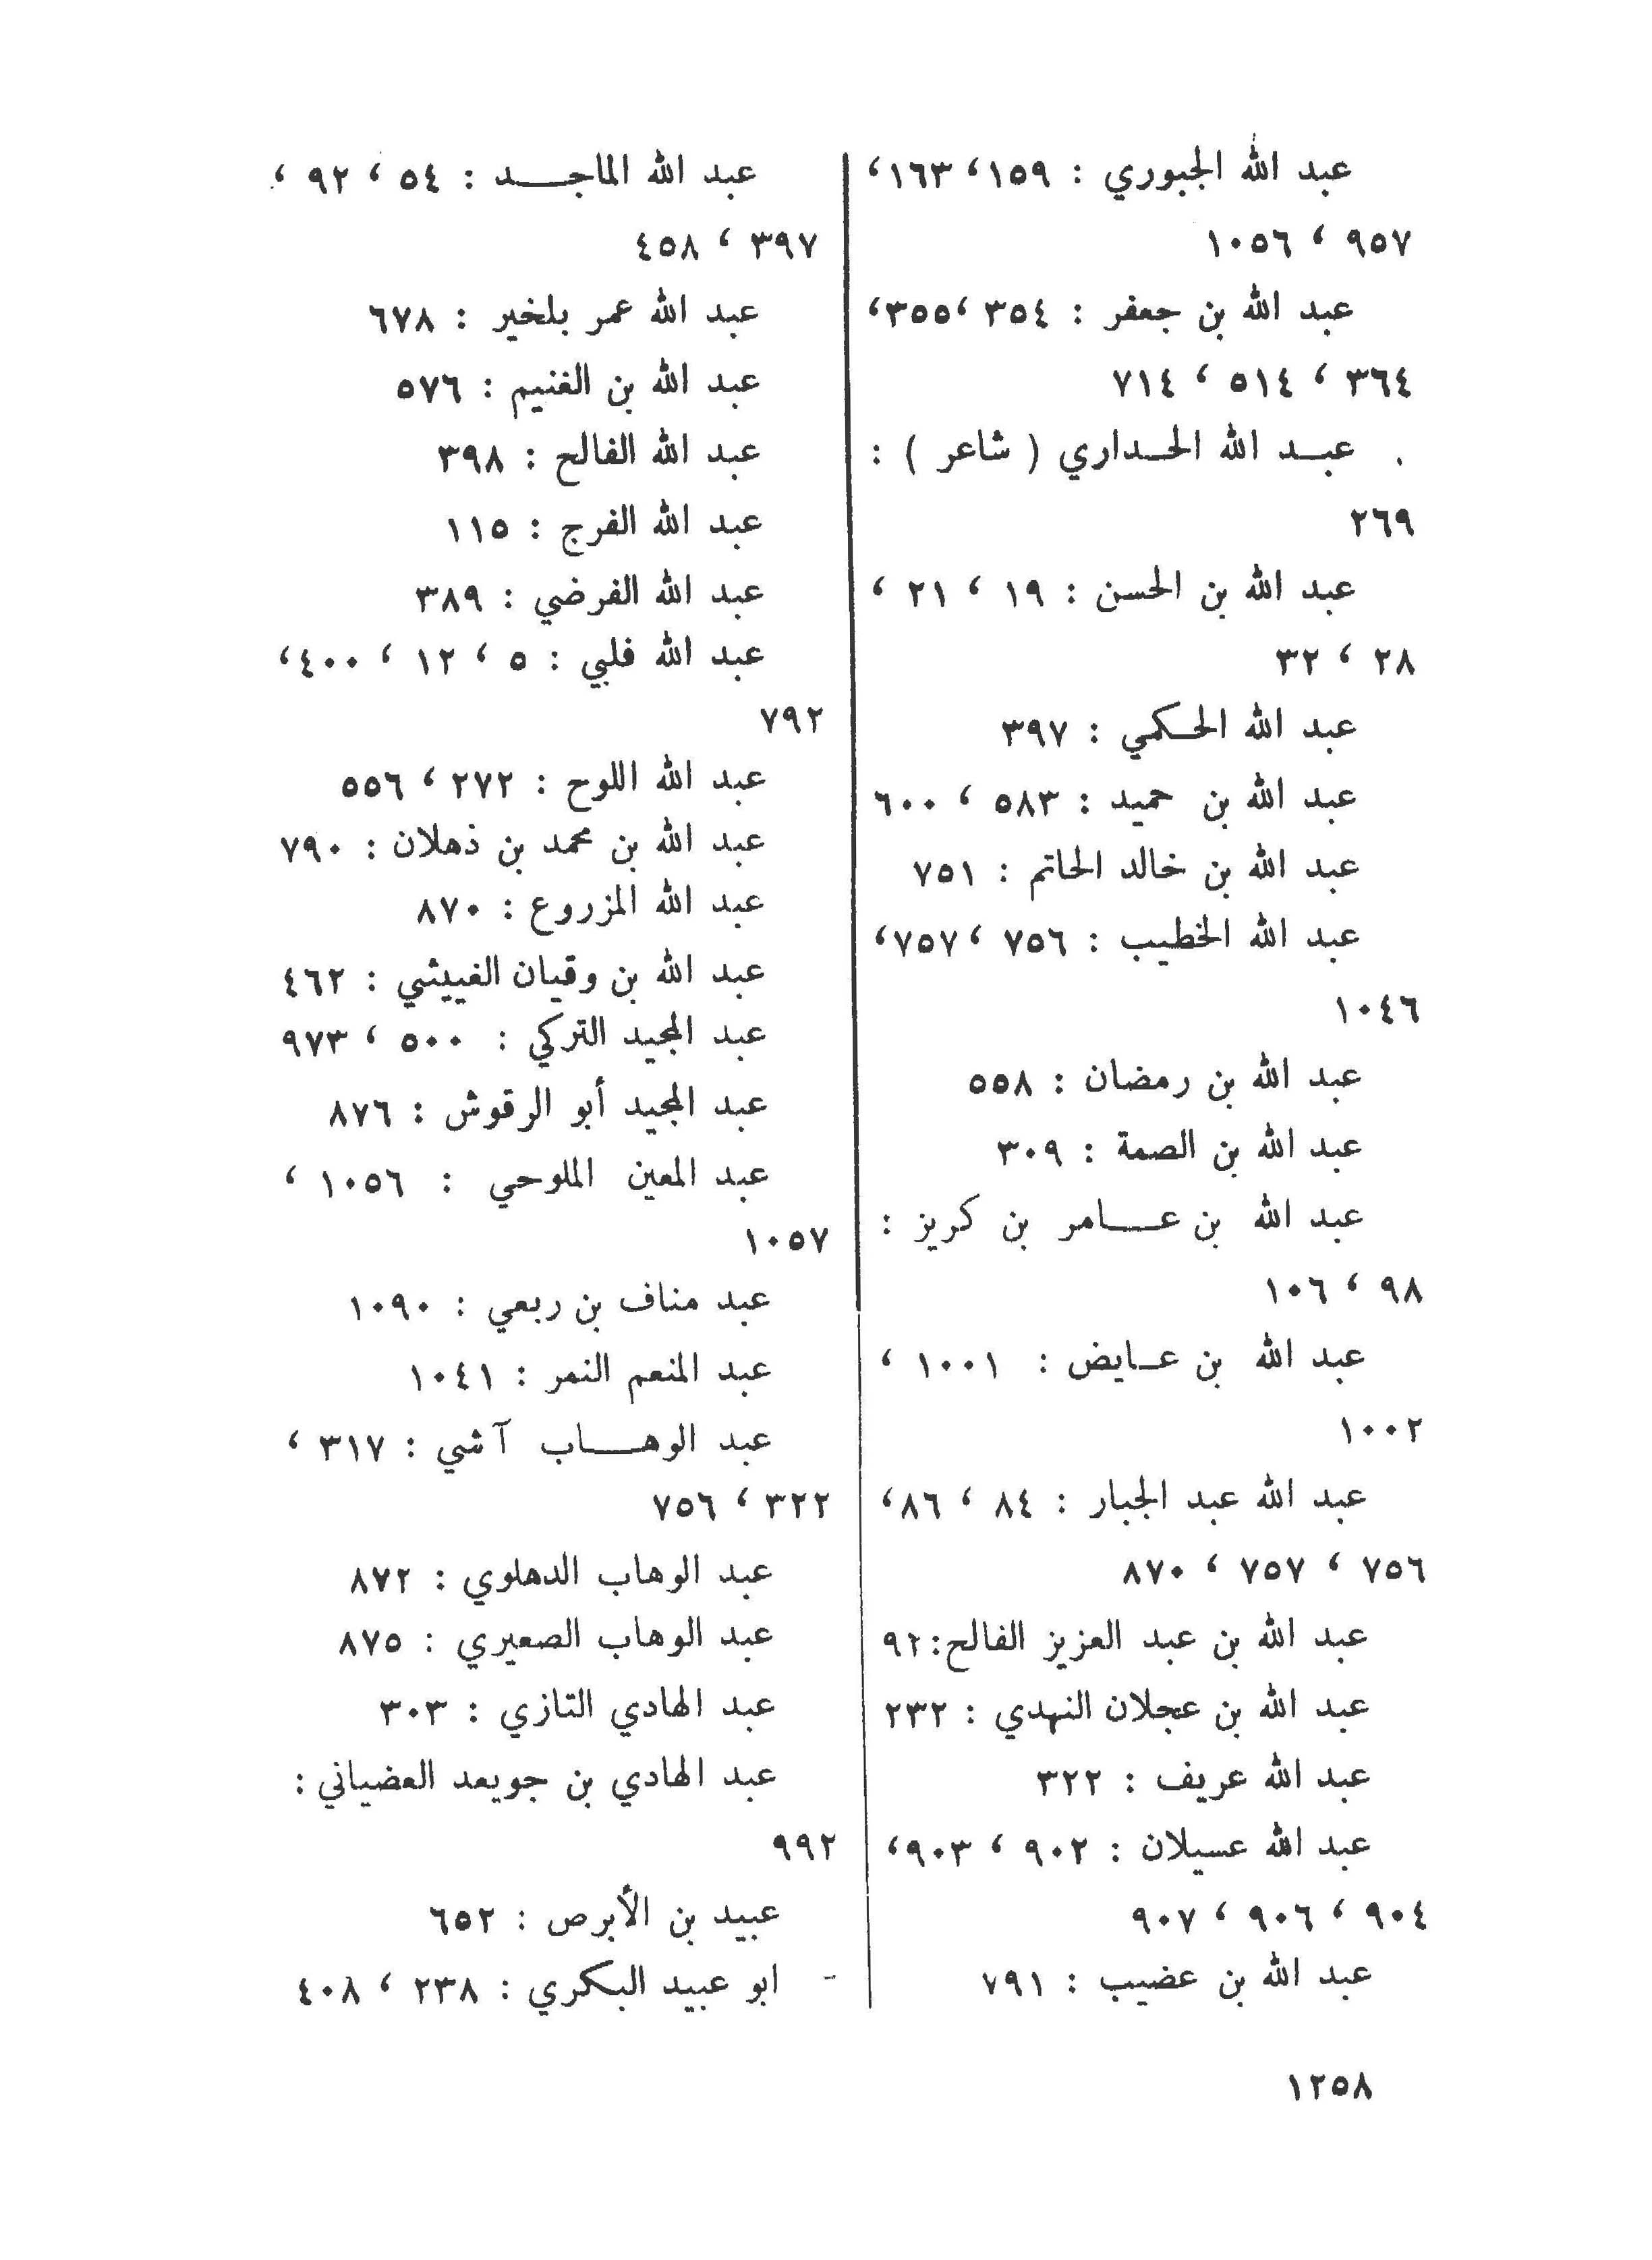 عبد الله الجبوري : ١٥٩، ١٦٣،
٩٥٧ ، ١٠٥٦
عبد الله بن جعفر : ٣٥٤ ،٣٥٥،
٣٦٤ ، ٥١٤ ، ٧١٤
عبـد الله الحـداري ( شاعر ) :
٢٦٩
عبد الله بن الحسن : ١٩ ، ٢١ ،
٢٨ ، ٣٢
عبد الله الحـكمي : ٣٩٧
عبد الله بن حميد : ٥٨٣ ، ٦٠٠
عبد الله بن خالد الحاتم : ٧٥١
عبد الله الخطيب : ٧٥٦ ،٧٥٧،
١٠٤٦
عبد الله بن رمضان : ٥٥٨
عبد الله بن الصمة : ٣٠٩
عبد الله بن عـــامر بن كريز :
٩٨ ، ١٠٦
عبد الله بن عـايض : ١٠٠١ ،
١٠٠٢
عبد الله عبد الجبار : ٨٤ ، ٨٦،
٧٥٦ ، ٧٥٧ ، ٨٧٠
عبد الله بن عبد العزيز الفالح:٩٢
عبد الله بن عجلان النهدي : ٢٣٢
عبد الله عريف : ٣٢٢
عبد الله عسيلان : ٩٠٢ ، ٩٠٣،
٩٠٤ ، ٩٠٦ ، ٩٠٧
عبد الله بن عضيب : ٧٩١
عبد الله الماجـــد : ٥٤ ، ٩٢ ،
٣٩٧ ، ٤٥٨
عبد الله عمر بلخير : ٦٧٨
عبد الله بن الغنيم : ٥٧٦
عبد الله الفالح : ٣٩٨
عبد الله الفرج : ١١٥
عبد الله الفرضي : ٣٨٩
عبد الله فلبي : ٥ ، ١٢ ، ٤٠٠،
٧٩٢
عبد الله اللوح : ٢٧٢ ، ٥٥٦
عبد الله بن محمد بن ذهلان : ٧٩٠
عبد الله المزروع : ٨٧٠
عبد الله بن وقيان الغييثي : ٤٦٢
عبد المجيد التركي : ٥٠٠ ، ٩٧٣
عبد المجيد أبو الرقوش : ٨٧٦
عبد المعين الملوحي : ١٠٥٦ ،
١٠٥٧
عبد مناف بن ربعي : ١٠٩٠
عبد المنعم النمر : ١٠٤١
عبد الوهـــاب آشي : ٣١٧ ،
٣٢٢ ، ٧٥٦
عبد الوهاب الدهلوي : ٨٧٢
عبد الوهاب الصعيري : ٨٧٥
عبد الهادي التازي : ٣٠٣
عبد الهادي بن جويعد العضياني :
٩٩٢
عبيد بن الأبرص : ٦٥٢
- ابو عبيد البكري : ٢٣٨ ، ٤٠٨
١٢٥٨